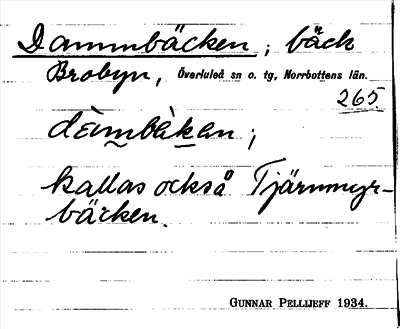 Dammbäcken, bäck
Brobyn, Överluleå sn o. tg, Norrbottens län.
265
dàmbäkan;
kallas också Tjärnmyr-
bäcken.
GUNNAR PELLIJEFF 1934.